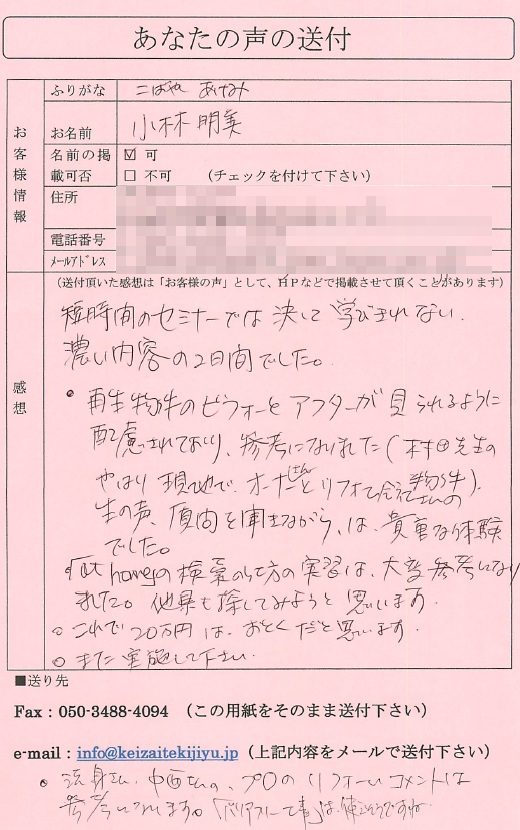 あなたの声の送付
お客様情報
ふりがな こばやし あけみ
お名前 小林 明美
名前の掲載可否 ☑ 可
□ 不可 (チェックを付けて下さい)
住所
電話番号
メールアドレス
感想
(送付頂いた感想は「お客様の声」として、HPなどで掲載させて頂くことがあります)
短時間のセミナーでは決して学びきれない
濃い内容の2日間でした。
・再生物件のビフォーとアフターが見られるように
配慮されており、参考になりました(村田先生の
物件)。
やはり現地で、オーナーさんとリフォーム会社さんの
生の声、質問を聞きながら、は、貴重な体験
でした。
・「at home」の検索の仕方の実習は、大変参考になり
ました。他県も探してみようと思います。
○ これで20万円は、おとくだと思います。
○ また実施して下さい。
■送り先
Fax:050-3488-4094 (この用紙をそのまま送付下さい)
e-mail:info@keizaitekijiyu.jp (上記内容をメールで送付下さい)
・ 中西さんの、プロのリフォームコメントは
参考になります。